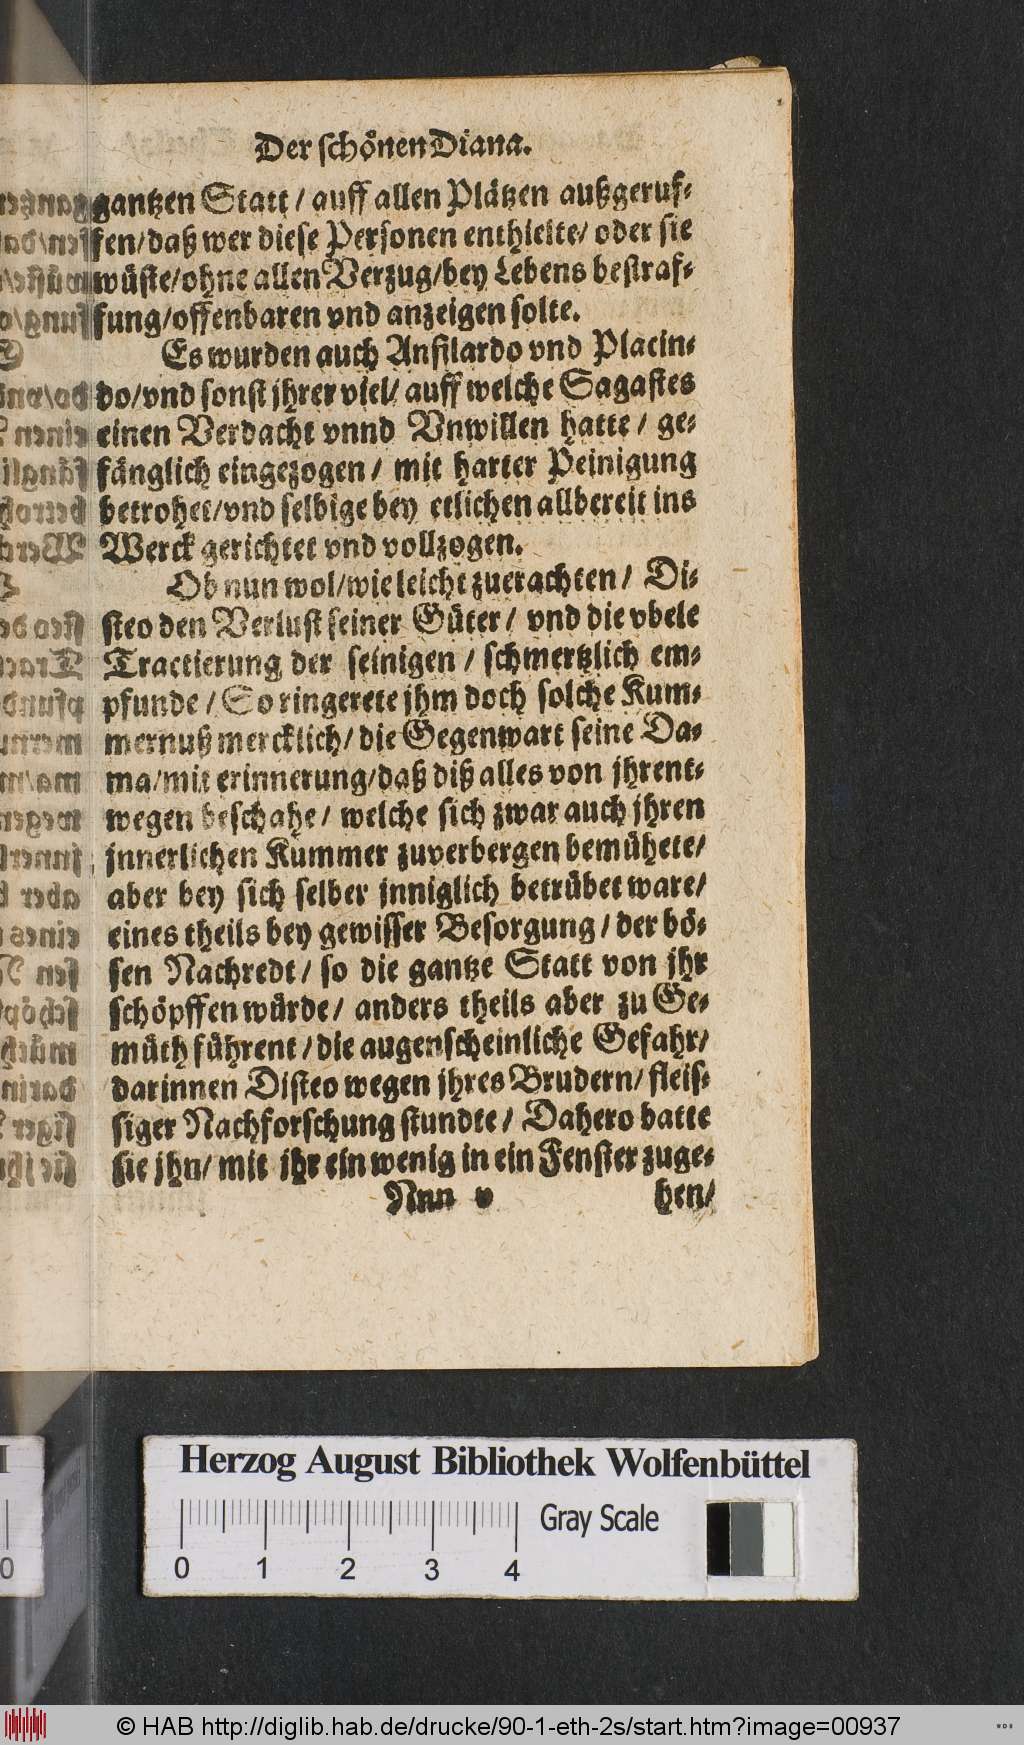 Der schönen Diana.
gantzen Statt / auff allen Plätzen außgeruf-
fen/daß wer diese Personen enthielte/ oder sie
wüste/ohne allen Verzug/bey Lebens bestraf-
fung/offenbaren vnd anzeigen solte.
Es wurden auch Anfilardo vnd Placin-
do/vnd sonst jhrer viel/ auff welche Sagastes
einen Verdacht vnnd Vnwillen hatte / ge-
fänglich eingezogen / mit harter Peinigung
betrohet/vnd selbige bey etlichen allbereit ins
Werck gerichtet vnd vollzogen.
Ob nun wol/wie leicht zuerachten / Di-
steo den Verlust seiner Güter / vnd die vbele
Tractierung der seinigen / schmertzlich em-
pfunde / So ringerete jhm doch solche Kum-
mernuß mercklich/ die Gegenwart seine Da-
ma/mit erinnerung/daß diß alles von jhrent-
wegen beschahe / welche sich zwar auch jhren
jnnerlichen Kummer zuverbergen bemühete/
aber bey sich selber jnniglich betrübet ware/
eines theils bey gewisser Besorgung / der bö-
sen Nachredt / so die gantze Statt von jhr
schöpffen würde / anders theils aber zu Ge-
müth führent / die augenscheinliche Gefahr/
darinnen Disteo wegen jhres Brudern/ fleis-
siger Nachforschung stundte / Dahero batte
sie jhn/ mit jhr ein wenig in ein Fenster zuge-
Nnn v hen/
Herzog August Bibliothek Wolfenbüttel
Gray Scale
0 1 2 3 4
© HAB http://diglib.hab.de/drucke/90-1-eth-2s/start.htm?image=00937